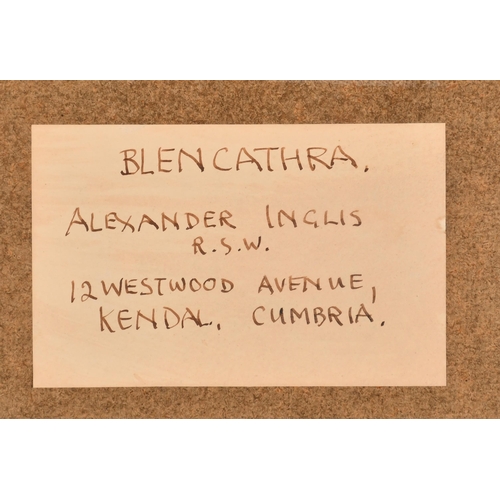 BLENCATHRA.
ALEXANDER INGLIS
R.S.W.
12 WESTWOOD AVENUE,
KENDAL, CUMBRIA.